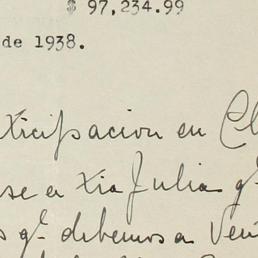 $ 97,234.99
de 1938.
ticipacion en Cl
se a tia Julia qe
s qe debemos a Ven